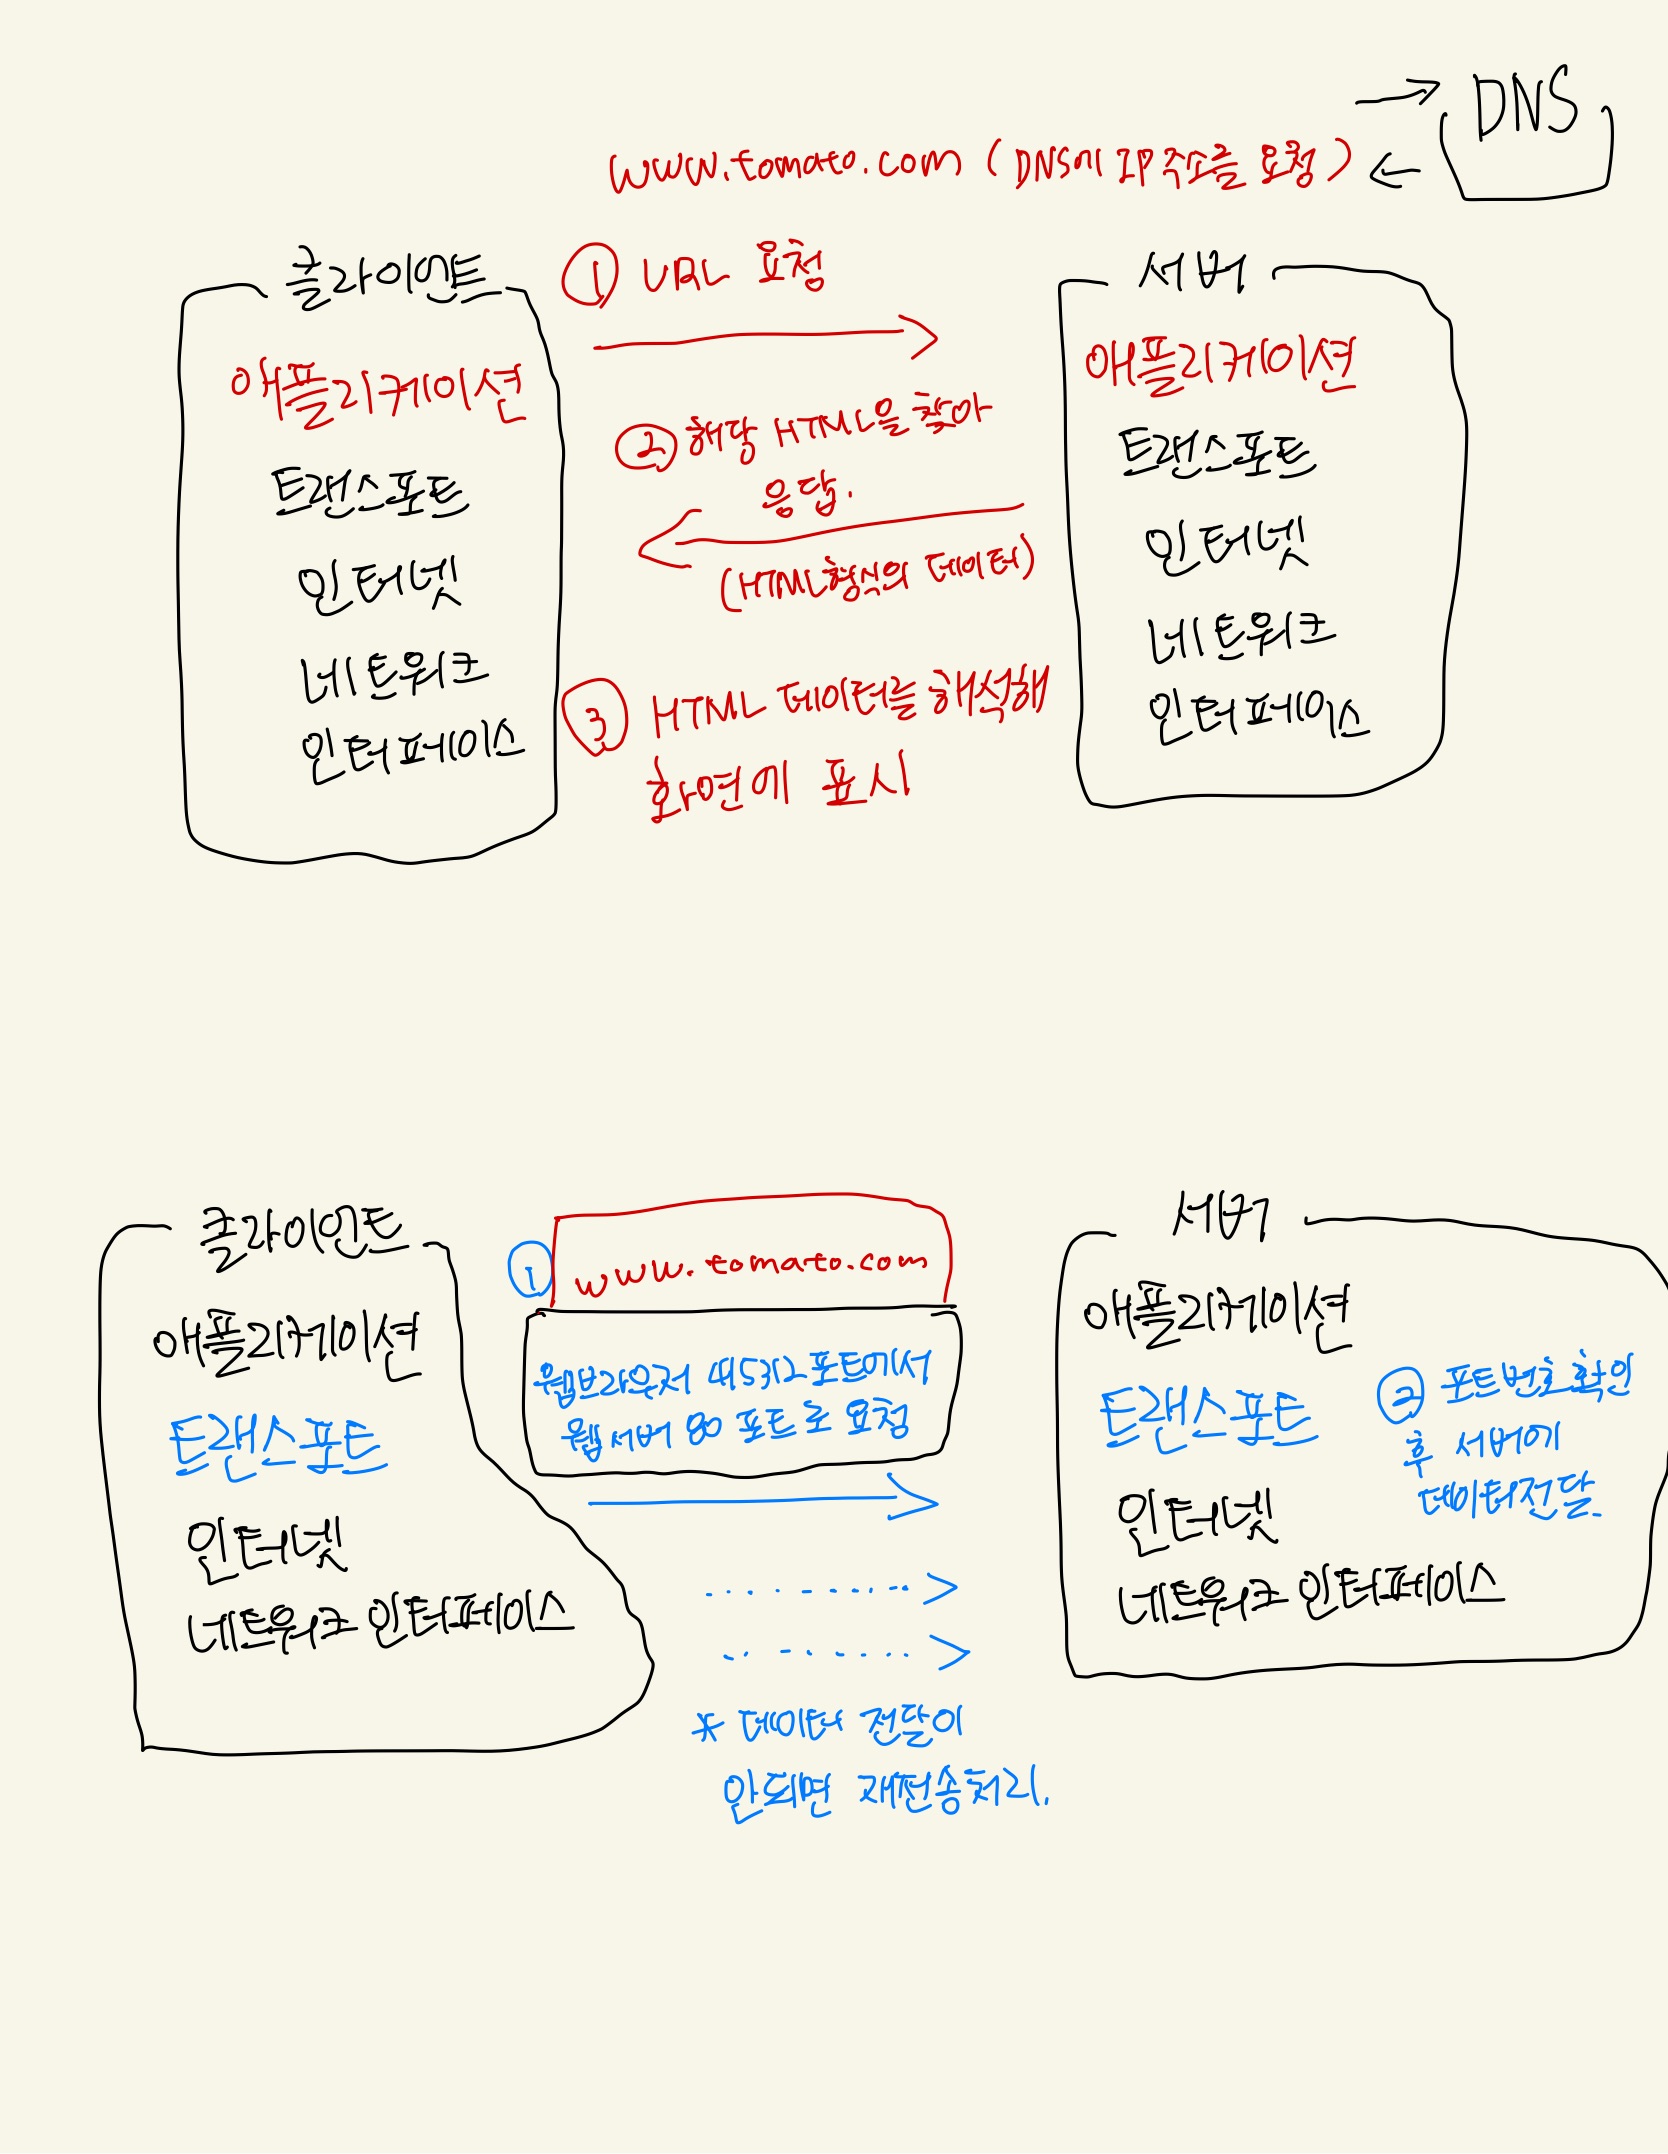 DNS
www.tomato.com (DNS에 IP주소를 요청)
클라이언트
애플리케이션
트랜스포트
인터넷
네트워크
인터페이스
① URL 요청
② 해당 HTML을 찾아
응답.
(HTML형식의 데이터)
③ HTML 데이터를 해석해
화면에 표시
서버
애플리케이션
트랜스포트
인터넷
네트워크
인터페이스
클라이언트
애플리케이션
트랜스포트
인터넷
네트워크 인터페이스
① www.tomato.com
웹브라우저 45312포트에서
웹서버 80 포트로 요청
* 데이터 전달이
안되면 재전송처리.
서버
애플리케이션
트랜스포트
인터넷
네트워크 인터페이스
② 포트번호 확인
후 서버에
데이터전달.